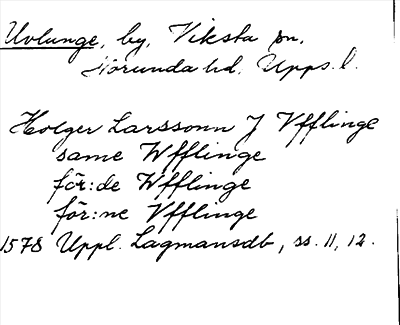 Uvlunge, by, Viksta sn,
Norunda hd, Upps. l.
Holger Larssonn J Vfflinge
same Wfflinge
för:de Wfflinge
för:ne Vfflinge
1578 Uppl. Lagmansdb, ss. 11, 12.